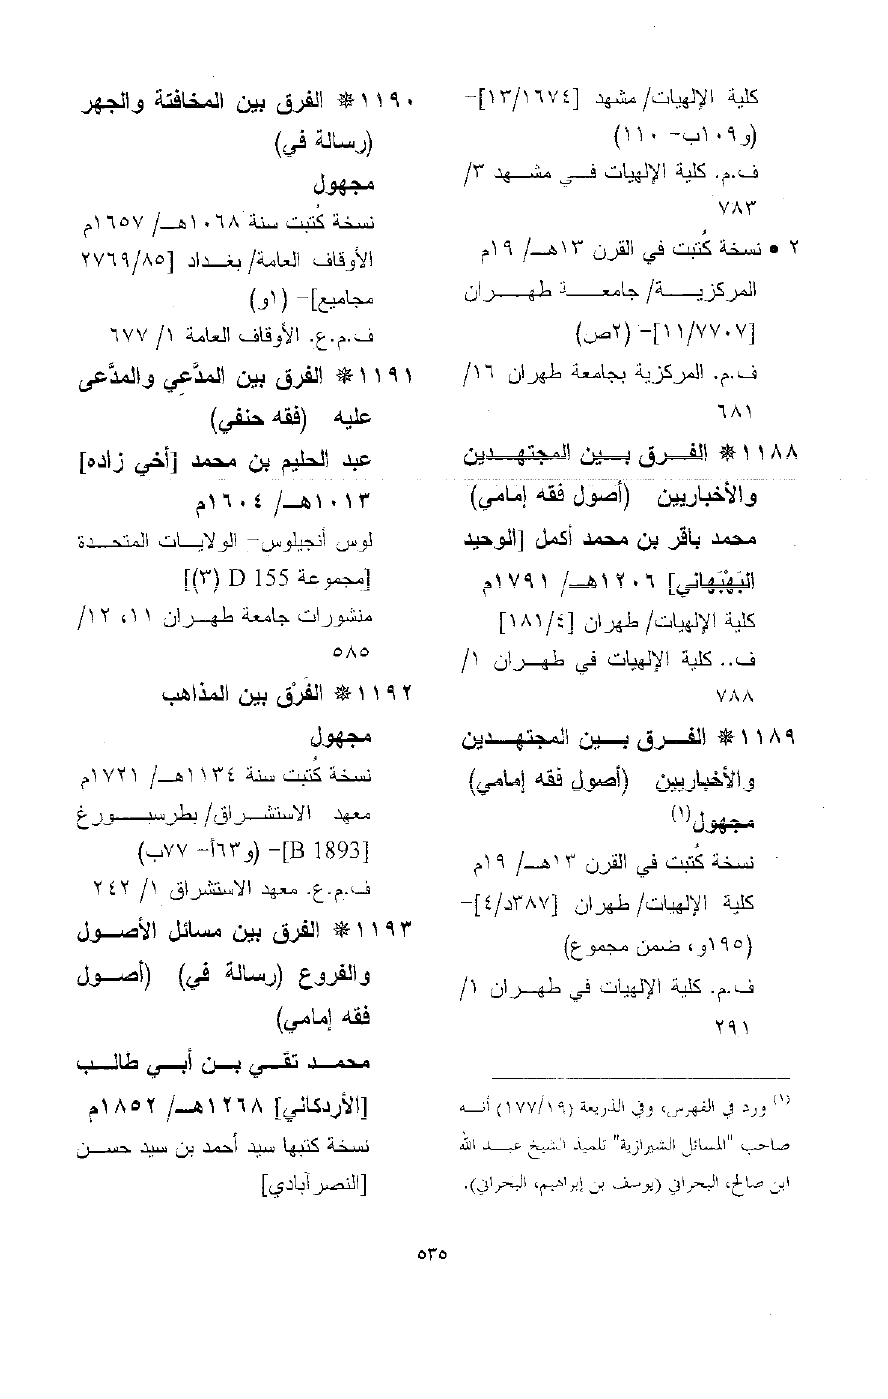 كلية الإلهيات/ مشهد [١٣/١٦٧٤]-
(و١٠٩ب- ١١٠)
ف.م. كلية الإلهيات في مشهد ٣/
٧٨٣
٢ • نسخة كُتبت في القرن ١٣هـ/ ١٩م
المركزية/ جامعة طهران
[١١/٧٧٠٧]- (٢ص)
ف.م. المركزية بجامعة طهران ١٦/
٦٨١
١١٨٨* الفرق بين المجتهدين
والأخباريين (أصول فقه إمامي)
محمد باقر بن محمد أكمل [الوحيد
البَهْبَهاني] ١٢٠٦هـ/ ١٧٩١م
كلية الإلهيات/ طهران [١٨١/٤]
ف.. كلية الإلهيات في طهران ١/
٧٨٨
١١٨٩* الفرق بين المجتهدين
والأخباريين (أصول فقه إمامي)
مجهول(١)
نسخة كُتبت في القرن ١٣هـ/ ١٩م
كلية الإلهيات/ طهران [٣٨٧د/٤]-
(١٩٥و، ضمن مجموع)
ف.م. كلية الإلهيات في طهران ١/
٢٩١
(١) ورد في الفهرس، وفي الذريعة (١٧٧/١٩) أنه
صاحب "المسائل الشيرازية" تلميذ الشيخ عبد الله
ابن صالح، البحراني (يوسف بن إبراهيم، البحراني).
١١٩٠* الفرق بين المخافتة والجهر
(رسالة في)
مجهول
نسخة كُتبت سنة ١٠٦٨هـ/ ١٦٥٧م
الأوقاف العامة/ بغداد [٢٧٦٩/٨٥
مجاميع]- (١و)
ف.م.ع. الأوقاف العامة ١/ ٦٧٧
١١٩١* الفرق بين المدَّعِي والمدَّعى
عليه (فقه حنفي)
عبد الحليم بن محمد [أخي زاده]
١٠١٣هـ/ ١٦٠٤م
لوس أنجيلوس- الولايات المتحدة
[مجموعة D 155 (٣)]
منشورات جامعة طهران ١١، ١٢/
٥٨٥
١١٩٢* الفَرْق بين المذاهب
مجهول
نسخة كُتبت سنة ١١٣٤هـ/ ١٧٢١م
معهد الاستشراق/ بطرسبورغ
[B 1893]- (و٦٣أ- ٧٧ب)
ف.م.ع. معهد الاستشراق ١/ ٢٤٢
١١٩٣* الفرق بين مسائل الأصول
والفروع (رسالة في) (أصول
فقه إمامي)
محمد تقي بن أبي طالب
[الأردكاني] ١٢٦٨هـ/ ١٨٥٢م
نسخة كتبها سيد أحمد بن سيد حسن
[النصرآبادي]
٥٣٥